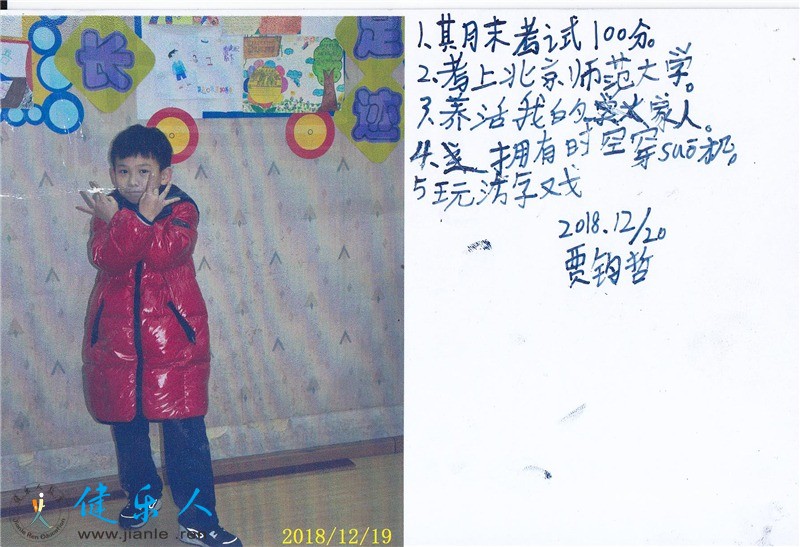 长
足
迹
健乐人
www.jianle
2018/12/19
1.其月末考试100分。
2.考上北京师范大学。
3.养活我的家人。
4.拥有时空穿suō机。
5玩
2018.12/20
贾钧哲